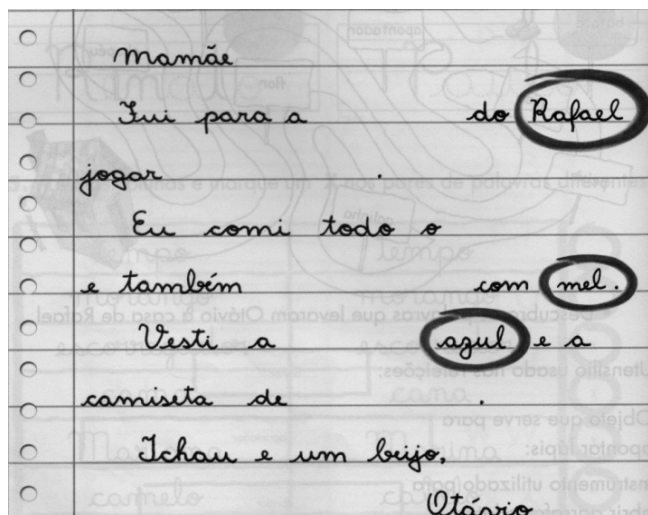 Mamãe
Fui para a do Rafael
jogar .
Eu comi todo o
e também com mel.
Vesti a azul e a
camiseta de .
Tchau e um beijo,
Otávio